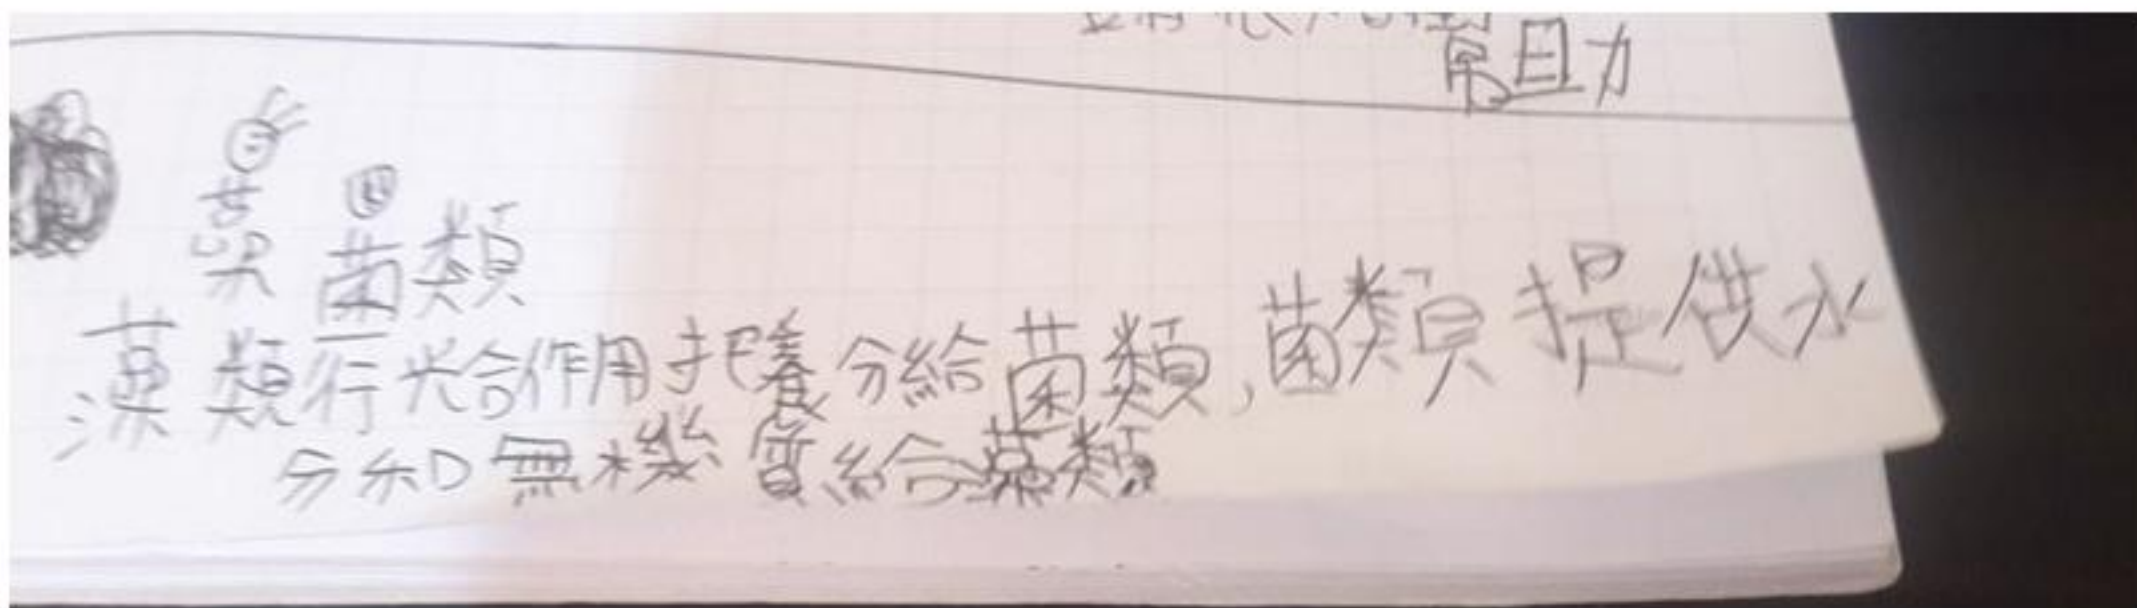 幫助
藻 菌類
藻類行光合作用把養分給菌類,菌類提供水
分和無機質給藻類